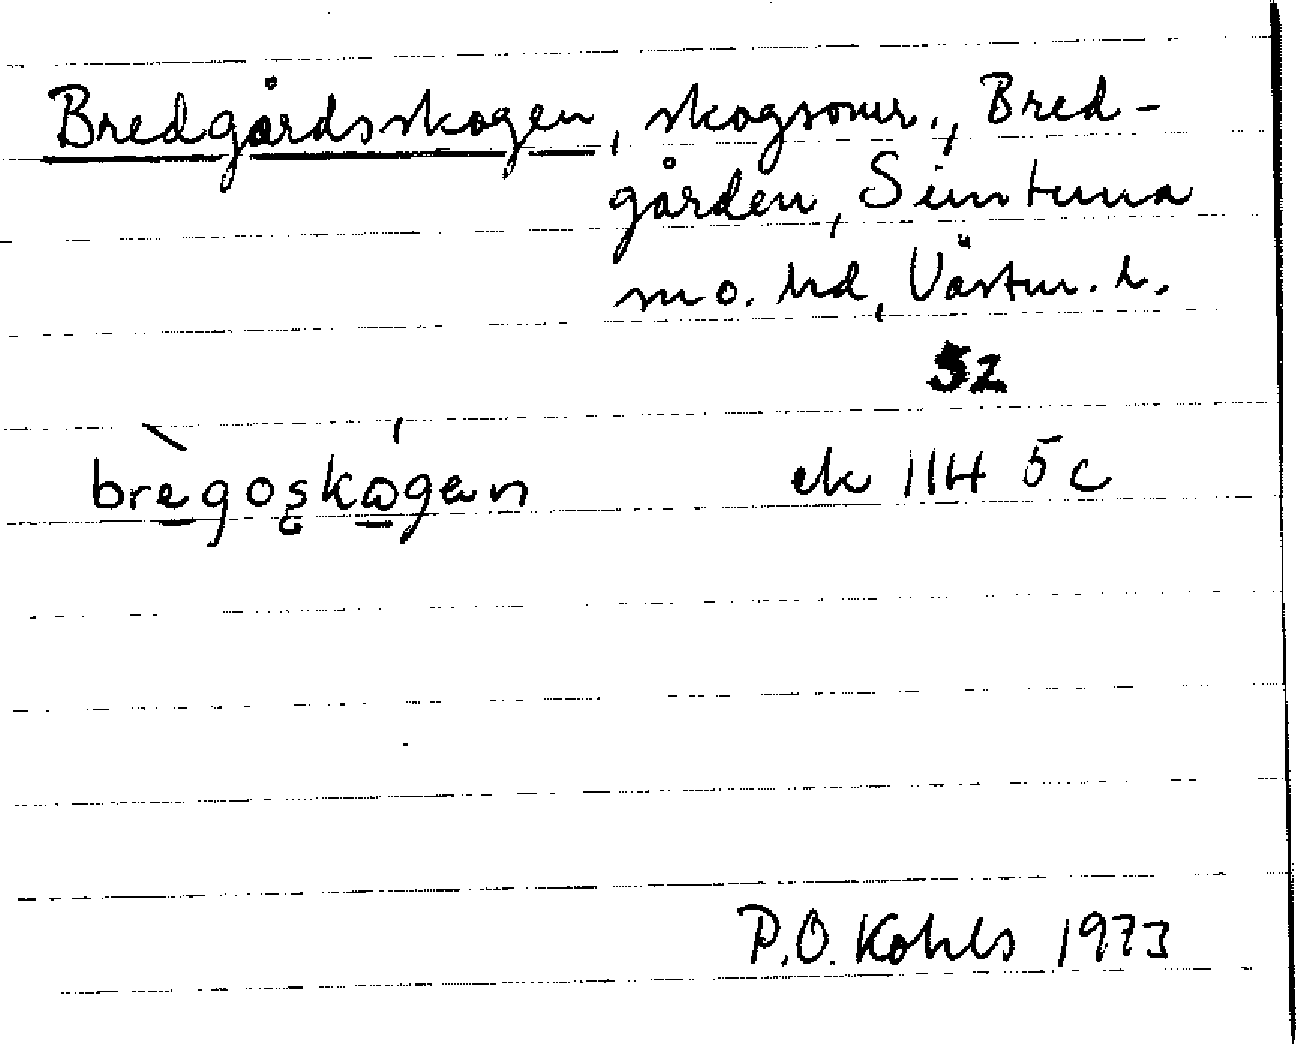 Bredgårdsskogen, skogsomr., Bred-
gården, Simtuna
sn o. hd, Västm. l.
52
brègoskógen
ek 11H 5c
P.O. Kohls 1973